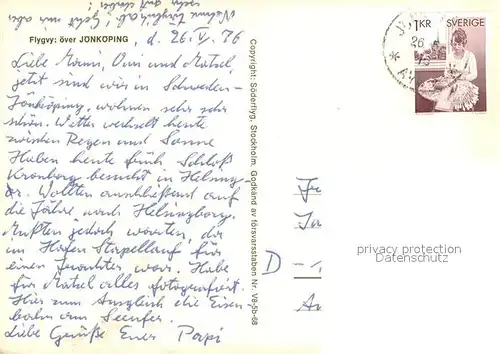 Nehme Förglieb ab! Geht mir aber
sehr gut dabei!
Flygvy: över JÖNKÖPING, d. 26.V. 76
Liebe Mammi, Omi und Mätzel,
jetzt sind wir in Schweden-
Jönköping, wohnen sehr sehr
schön. Wetter wechselt heute
zwischen Regen und Sonne
Haben heute früh Schloß
Kronborg besucht in Helsing-
ør. Wollten anschließend auf
die Fähre nach Helsingborg.
Mußten jedoch warten, da
im Hafen Stapellauf für
einen Frachter war. Habe
für Mätzel alles fotografiert.
Hier zum Ausgleich die Eisen-
bahn am Seeufer.
Liebe Grüße Euer Papi
Copyright: Söderflyg, Stockholm. Godkänd av försvarsstaben Nr. Va-5b-68
1 KR SVERIGE
26
D -
privacy protection
Datenschutz